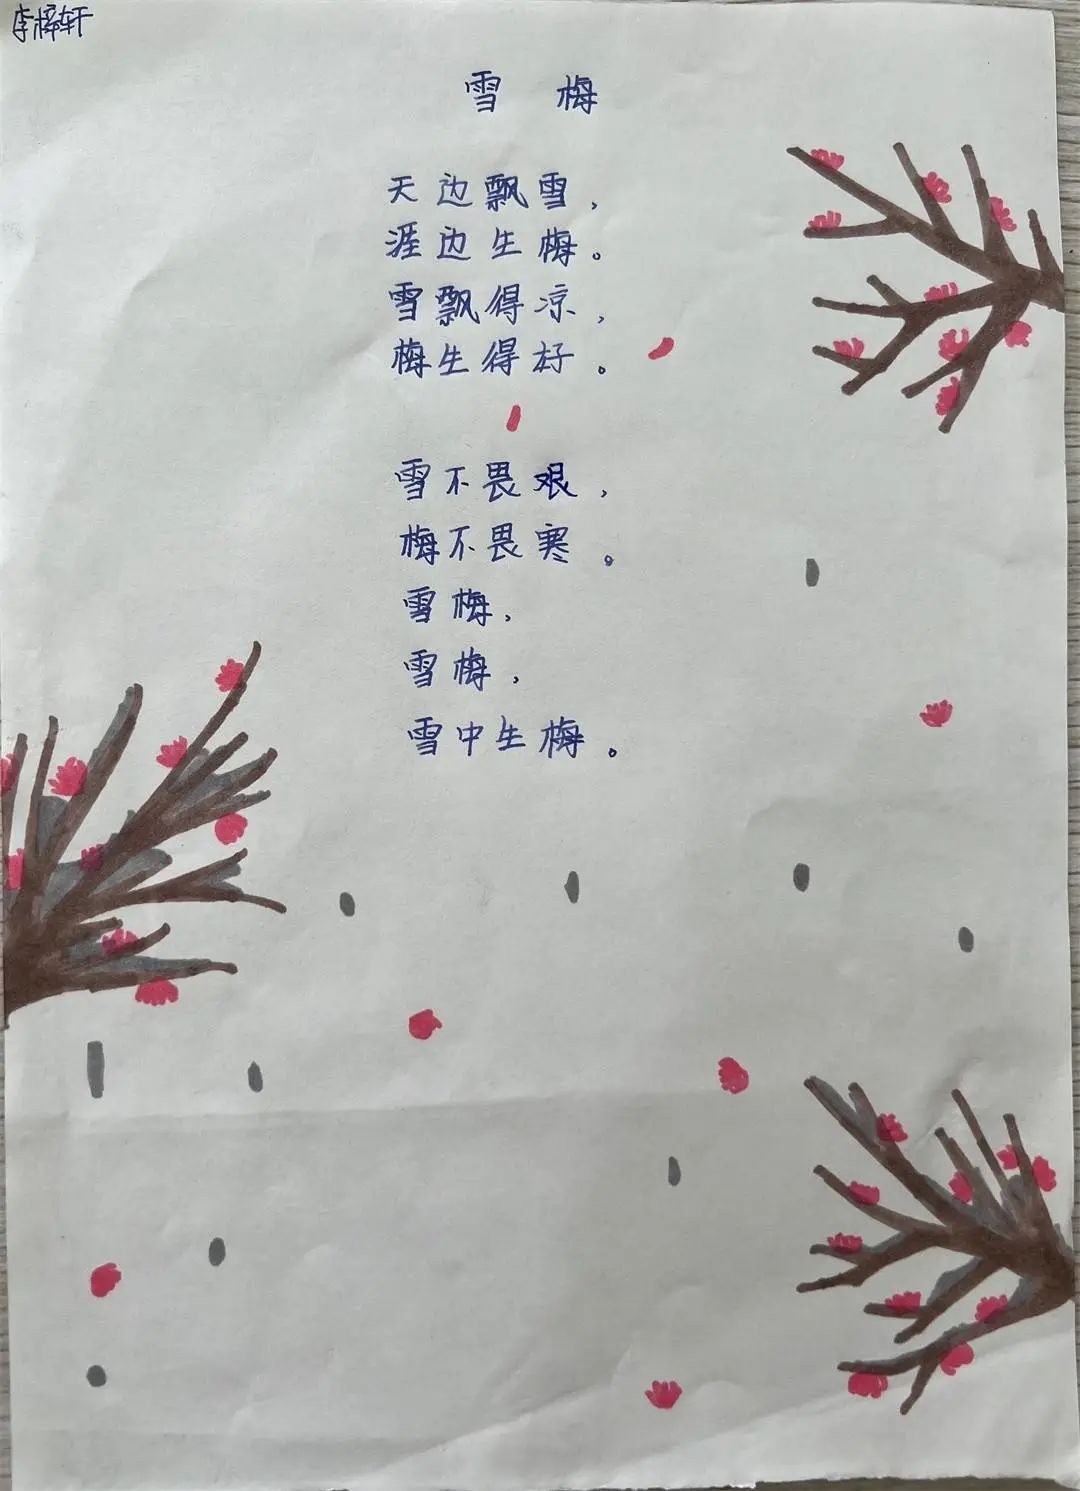 李梓轩
雪 梅
天边飘雪，
涯边生梅。
雪飘得凉，
梅生得好。
雪不畏艰，
梅不畏寒。
雪梅，
雪梅，
雪中生梅。